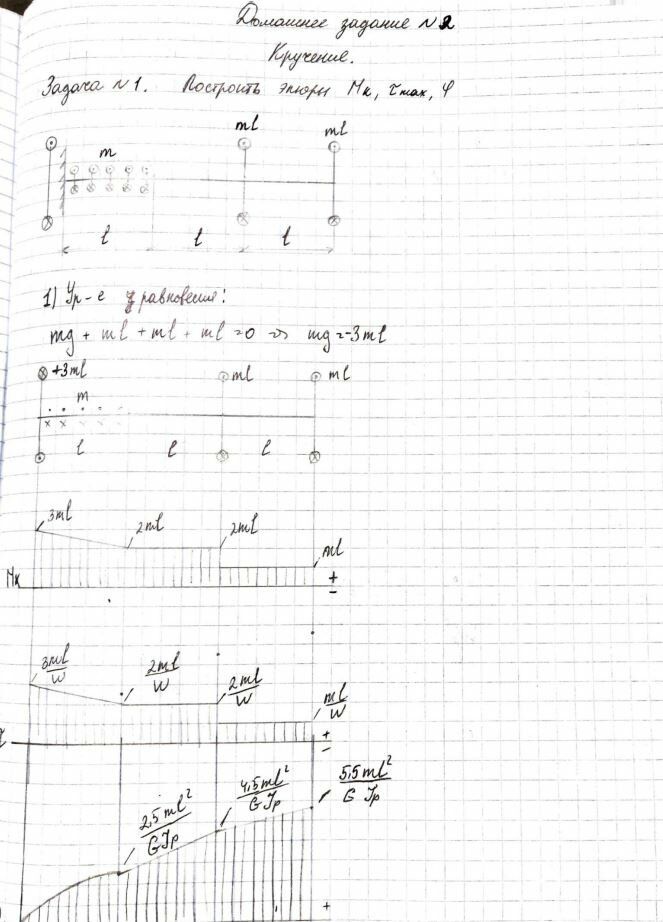 Домашнее задание №2
Кручение.
Задача №1. Построить эпюры Mк, τmax, φ
ml ml
m
l l l
1) Ур-е равновесия:
mg + ml + ml + ml = 0 => mg = -3ml
+3ml ml ml
m
l l l
3ml 2ml 2ml ml
Mк + -
3ml/W 2ml/W 2ml/W ml/W
τ + -
2,5ml²/GJp 4,5ml²/GJp 5,5ml²/GJp
+